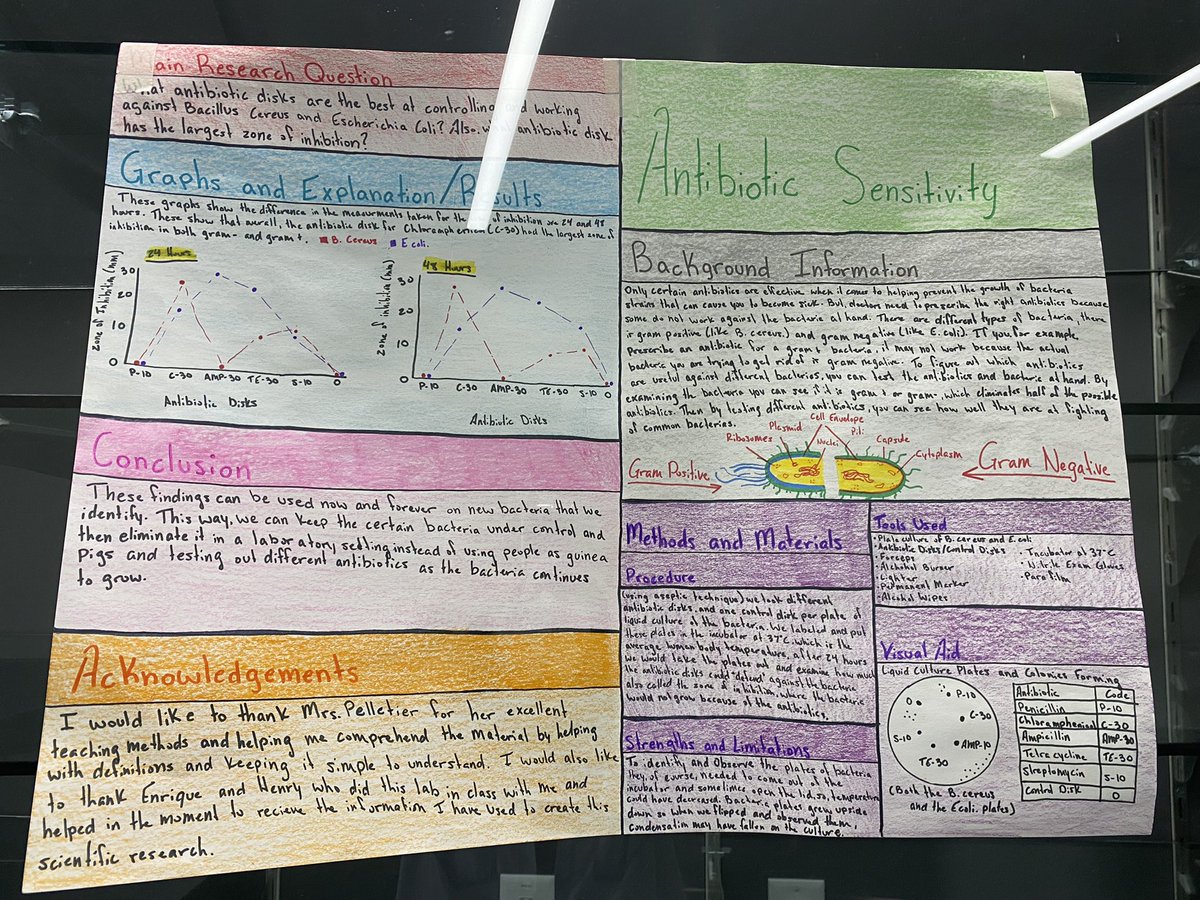 ain Research Question
What antibiotic disks are the best at controlling and working
against Bacillus Cereus and Escherichia Coli? Also, what antibiotic disk
has the largest zone of inhibition?
Graphs and Explanation/Results
These graphs show the difference in the measurments taken for the of inhibition are 24 and 48
hours. These show that overall, the antibiotic disk for Chloramphenicol (C-30) had the largest zone of
inhibition in both gram- and gram+.
B. Cereus
E coli.
24 Hours
Zone of Inhibition (mm)
30
20
10
0
P-10 C-30 AMP-30 TE-30 S-10 0
Antibiotic Disks
48 Hours
Zone of inhibition (mm)
30
20
10
0
P-10 C-30 AMP-30 TE-30 S-10 0
Antibiotic Disks
Conclusion
These findings can be used now and forever on new bacteria that we
identify. This way, we can keep the certain bacteria under control and
then eliminate it in a laboratory setting instead of using people as guinea
pigs and testing out different antibiotics as the bacteria continues
to grow.
Acknowledgements
I would like to thank Mrs. Pelletier for her excellent
teaching methods and helping me comprehend the Material by helping
with definitions and keeping it simple to understand. I would also like
to thank Enrique and Henry who did this lab in class with me and
helped in the moment to recieve the information I have used to create this
scientific research.
Antibiotic Sensitivity
Background Information
Only certain antibiotics are effective when it comes to helping prevent the growth of bacteria
strains that can cause you to become sick. But, doctors need to prescribe the right antibiotics because
some do not work against the bacteria at hand. There are different types of bacteria, there
is gram positive (like B. cereus) and gram negative (like E. coli). If you for example,
prescribe an antibiotic for a gram+ bacteria, it may not work because the actual
bacteria you are trying to get rid of is gram negative. To figure out which antibiotics
are useful against different bacterias, you can test the antibiotics and bacteria at hand. By
examining the bacteria you can see if it is gram+ or gram- which eliminates half of the possible
antibiotics. Then by testing different antibiotics, you can see how well they are at fighting
of common bacterias.
Cell Envelope
Plasmid
Pili
Ribosomes
Nuclei
Capsule
Cytoplasm
Gram Positive
Gram Negative
Methods and Materials
Procedure
(using aseptic technique) we took different
antibiotic disks, and one control disk per plate of
liquid culture of the bacteria. We labeled and put
these plates in the incubator at 37°C which is the
average human body temperature, after 24 hours
we would take the plates out and examine how much
the antibiotic disks could "defend" against the bacteria
also called the zone of inhibition, where the bacteria
would not grow because of the antibiotics.
Strengths and Limitations
To identity and Observe the plates of bacteria
they, of course, needed to come out of the
incubator and sometimes open the lid, so, temperature
could have decreased. Bacteria plates grew upside
down so when we flipped and observed them,
condensation may have fallen on the culture.
Tools Used
• Plate culture of B. cereus and E. coli
• Antibiotic Disks/Control Disks
• Forceps
• Alchohol Burner
• Lighter
• Permanent Marker
• Alcohol Wipes
• Incubator at 37°C
• Nitrile Exam Gloves
• Parafilm
Visual Aid
Liquid Culture Plates and Colonies Forming
P-10
0
C-30
S-10
AMP-10
TE-30
(Both the B. cereus
and the E.coli plates)
Antibiotic Code
Penicillin P-10
Chloramphenicol C-30
Ampicillin AMP-30
Tetracycline TE-30
Streptomycin S-10
Control Disk 0